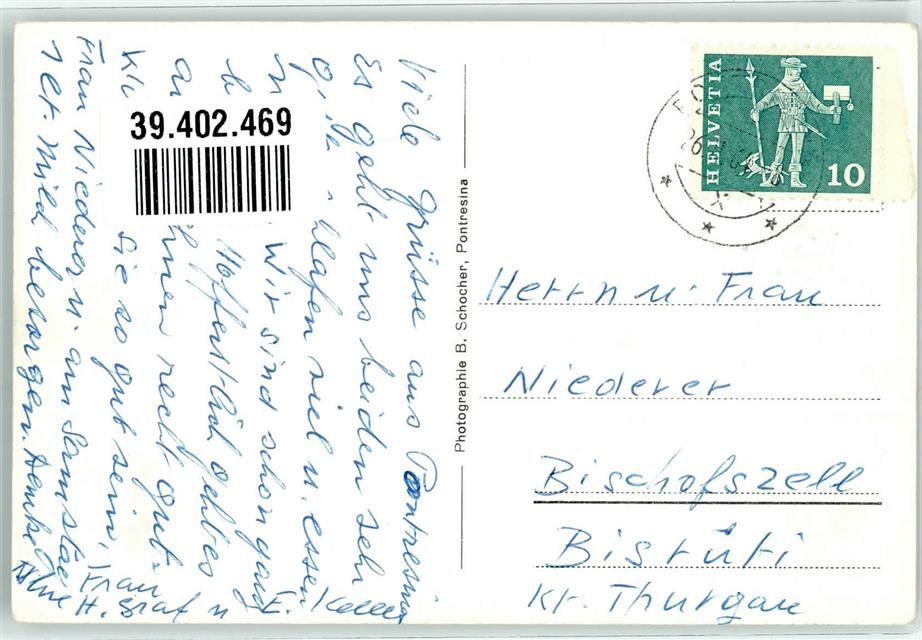 Viele Grüsse aus Pontresina
Es geht uns beiden sehr
schlafen viel u. essen
Wir sind schon ganz
Hoffentlich geht es
Ihnen recht gut.
Sie so gut sein,
Frau Niederer u. am Samstag
Milch besorgen. Danke
Frau
H. Graf u E. Keller
39.402.469
Photographie B. Schocher, Pontresina
HELVETIA
10
Herrn u. Frau
Niederer
Bischofszell
Bistüti
Kt. Thurgau